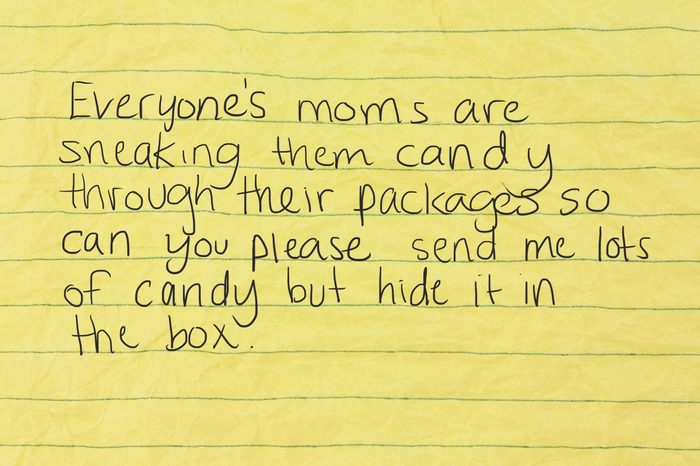 Everyone's moms are
sneaking them candy
through their packages so
can you please send me lots
of candy but hide it in
the box.